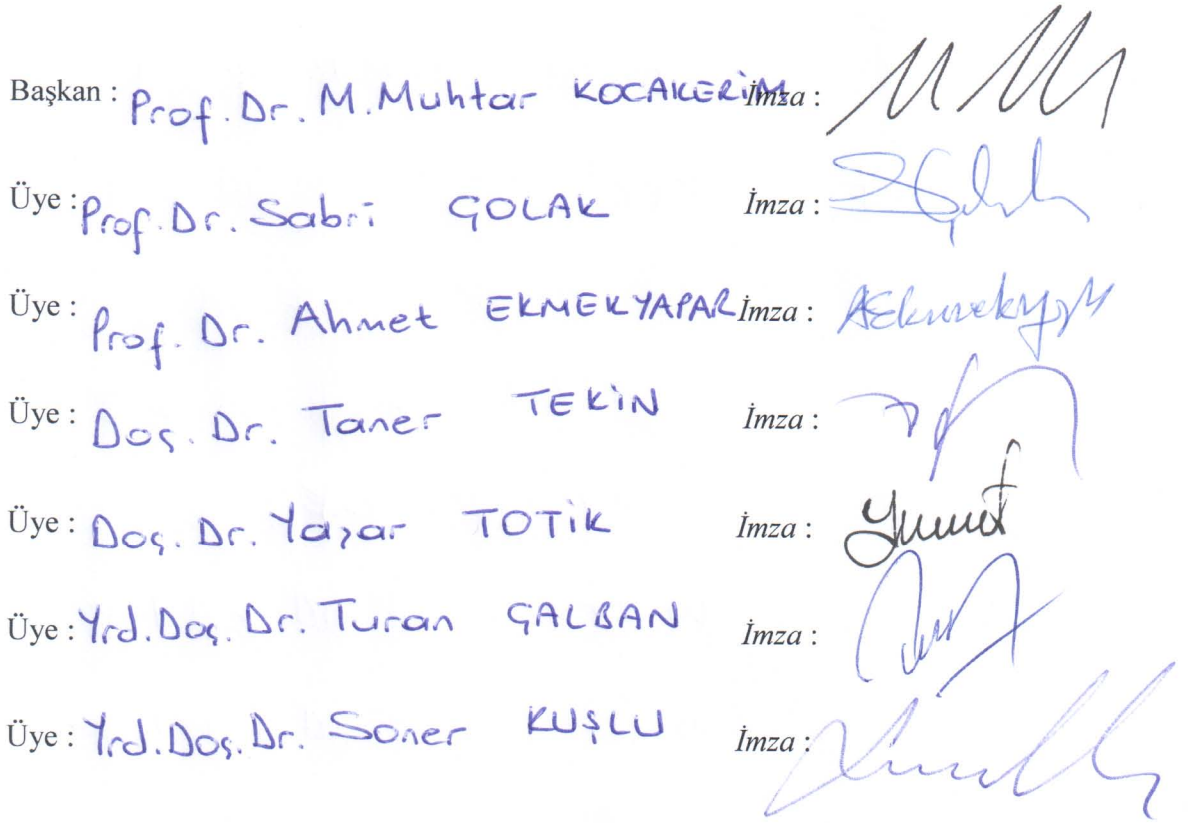 Başkan : Prof. Dr. M. Muhtar KOCAKERİM İmza :
Üye : Prof. Dr. Sabri ÇOLAK İmza :
Üye : Prof. Dr. Ahmet EKMEKYAPAR İmza : AEkmekyapar
Üye : Doç. Dr. Taner TEKİN İmza :
Üye : Doç. Dr. Yaşar TOTİK İmza :
Üye : Yrd. Doç. Dr. Turan ÇALBAN İmza :
Üye : Yrd. Doç. Dr. Soner KUŞLU İmza :